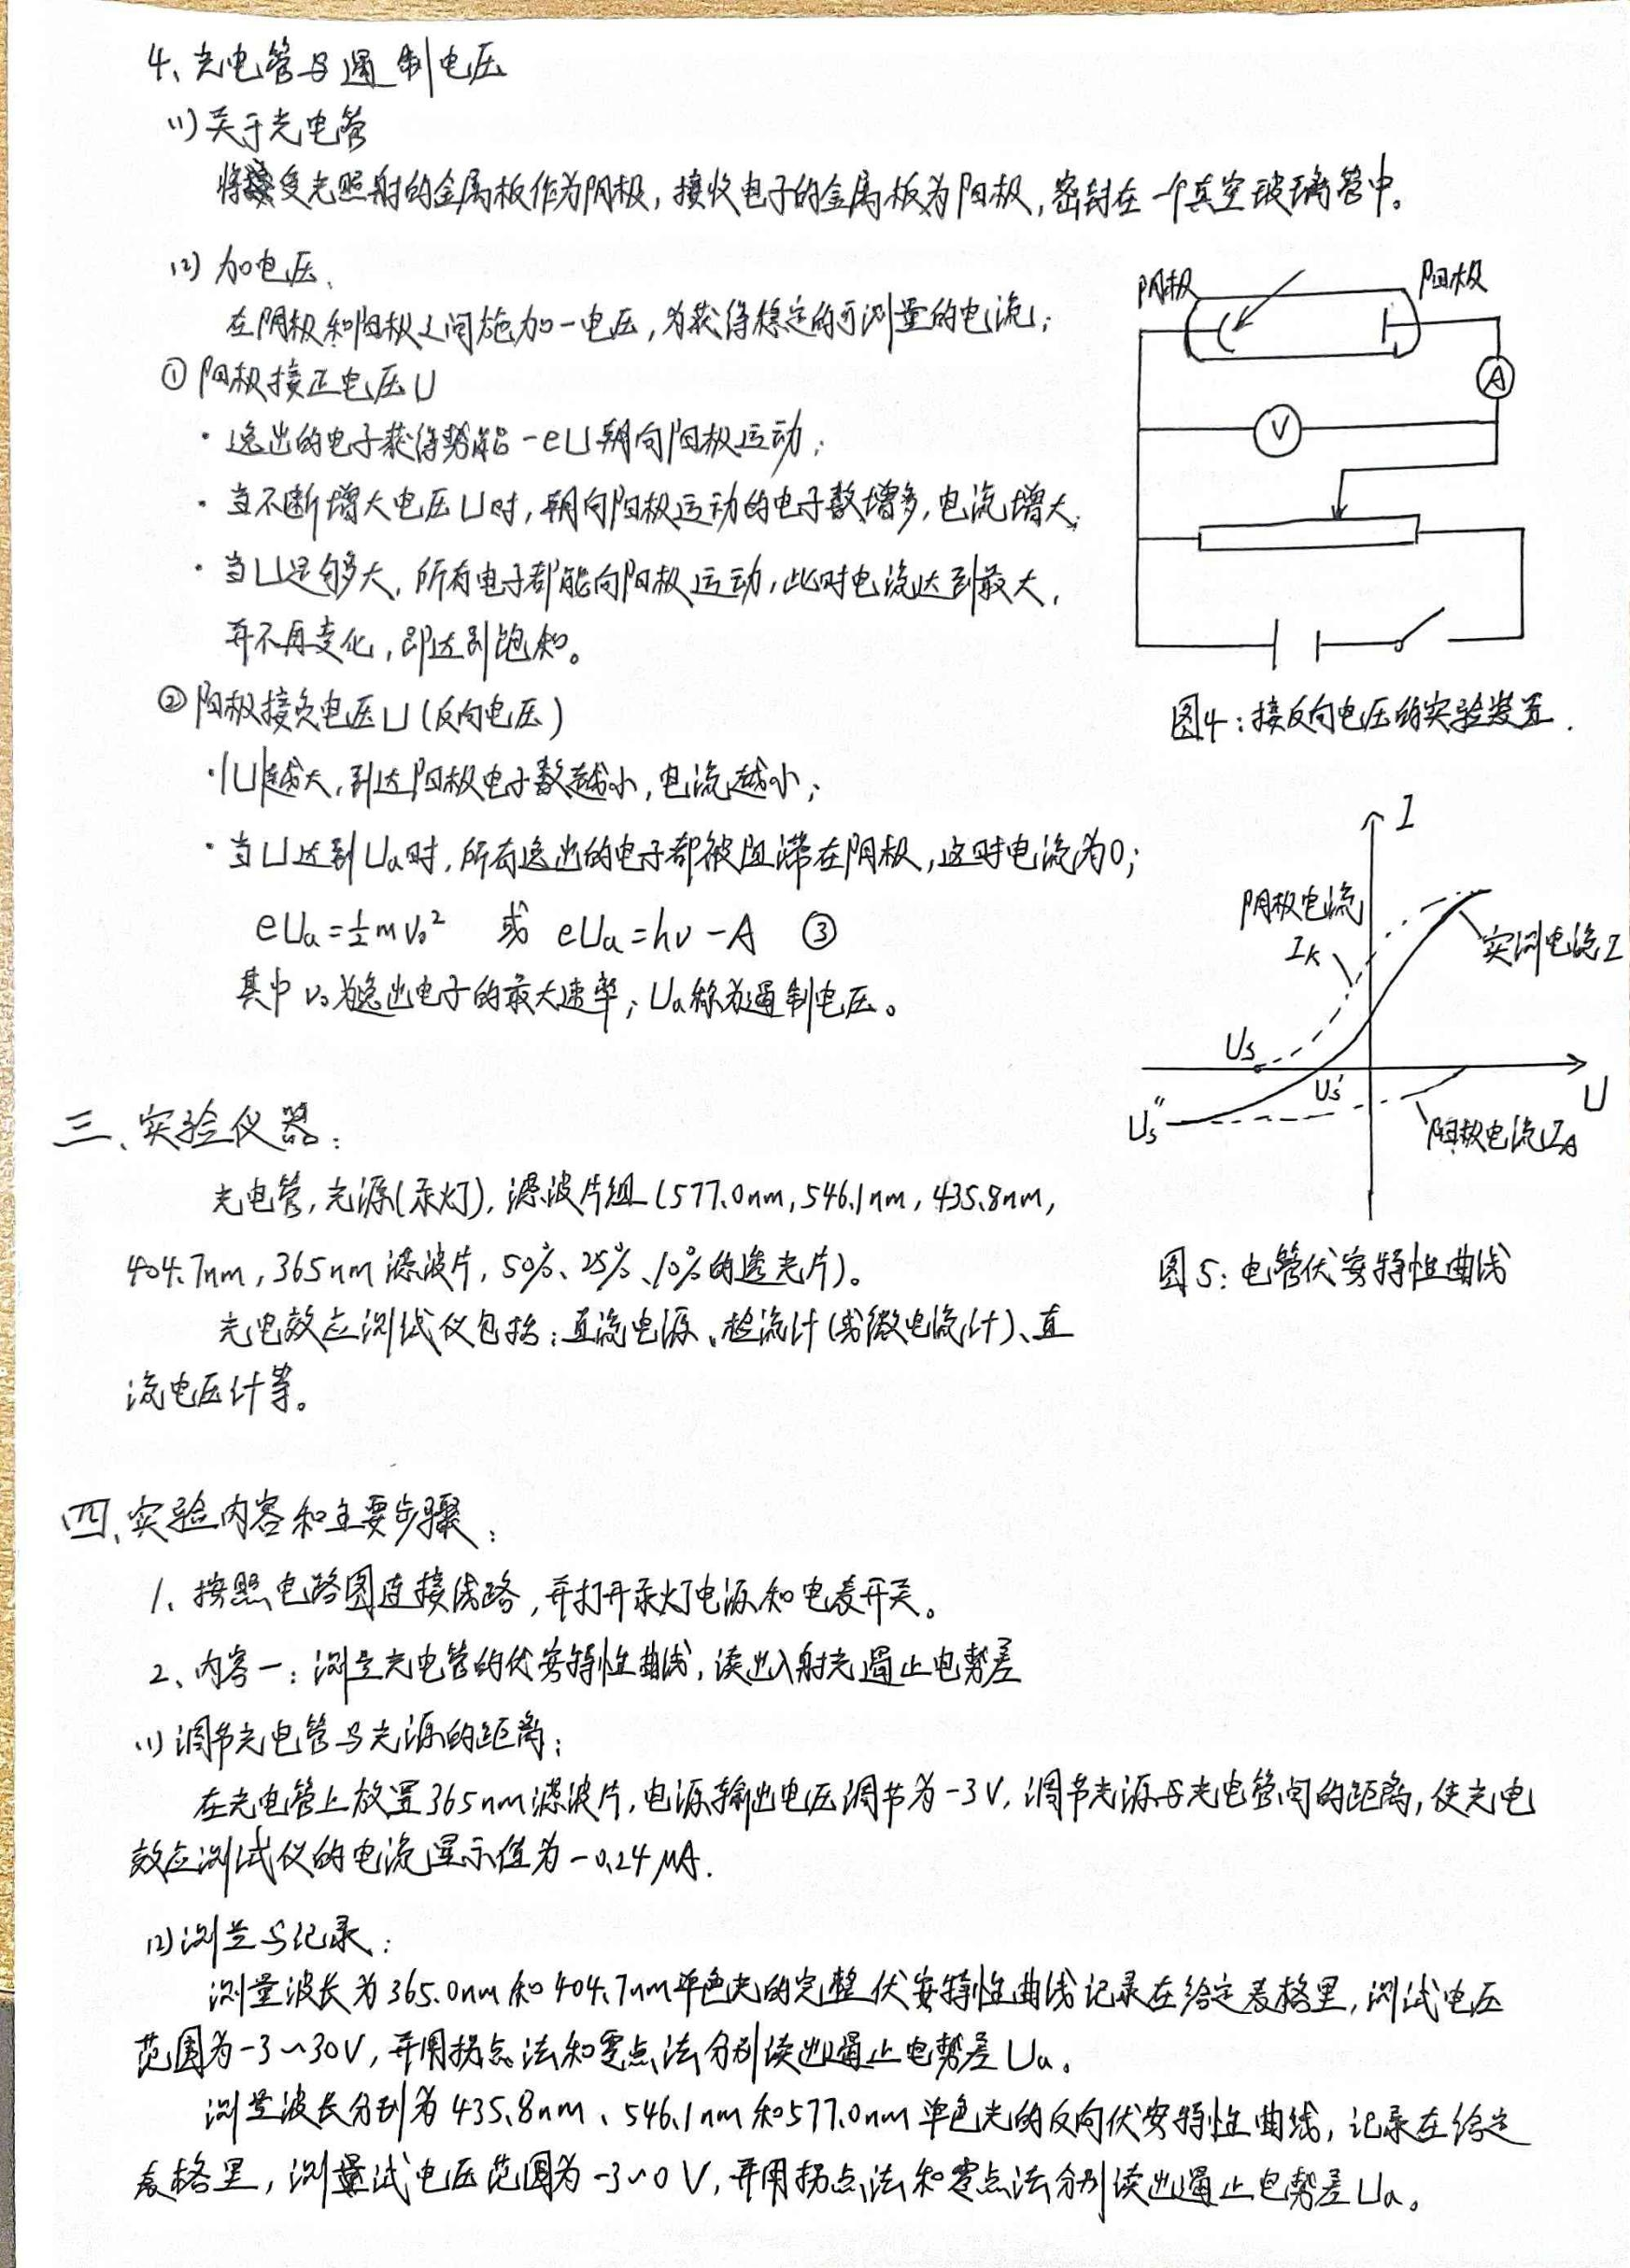 4、光电管与遏制电压
(1)关于光电管
将受光照射的金属板作为阴极,接收电子的金属板为阳极,密封在一个真空玻璃管中。
(2)加电压、
在阴极和阳极之间施加一电压,为获得稳定的可测量的电流;
①阳极接正电压U
·逸出的电子获得势能-eU朝向阳极运动;
·当不断增大电压U时,朝向阳极运动的电子数增多,电流增大;
·当U足够大,所有电子都能向阳极运动,此时电流达到最大,
并不再变化,即达到饱和。
②阳极接负电压U(反向电压)
·|U|越大,到达阳极电子数越小,电流越小;
·当U达到Ua时,所有逸出的电子都被阻滞在阴极,这时电流为0;
eUa=½mv₀² 或 eUa=hν-A ③
其中v₀为逸出电子的最大速率;Ua称为遏制电压。
阴极
阳极
A
V
图4:接反向电压的实验装置.
I
阴极电流
IK
实测电流I
Us
Us'
U
Us"
阳极电流IA
图5:电管伏安特性曲线
三、实验仪器:
光电管,光源(汞灯),滤波片组(577.0nm,546.1nm,435.8nm,
404.7nm,365nm滤波片,50%、25%、10%的透光片)。
光电效应测试仪包括:直流电源、检流计(或微电流计)、直
流电压计等。
四、实验内容和主要步骤:
1、按照电路图连接线路,并打开汞灯电源和电表开关。
2、内容一:测量光电管的伏安特性曲线,读出入射光遏止电势差
(1)调节光电管与光源的距离:
在光电管上放置365nm滤波片,电源输出电压调节为-3V,调节光源与光电管间的距离,使光电
效应测试仪的电流显示值为-0.24μA.
(2)测量与记录:
测量波长为365.0nm和404.7nm单色光的完整伏安特性曲线记录在给定表格里,测试电压
范围为-3~30V,并用拐点法和零点法分别读出遏止电势差Ua。
测量波长分别为435.8nm、546.1nm和577.0nm单色光的反向伏安特性曲线,记录在给定
表格里,测量试电压范围为-3~0V,并用拐点法和零点法分别读出遏止电势差Ua。